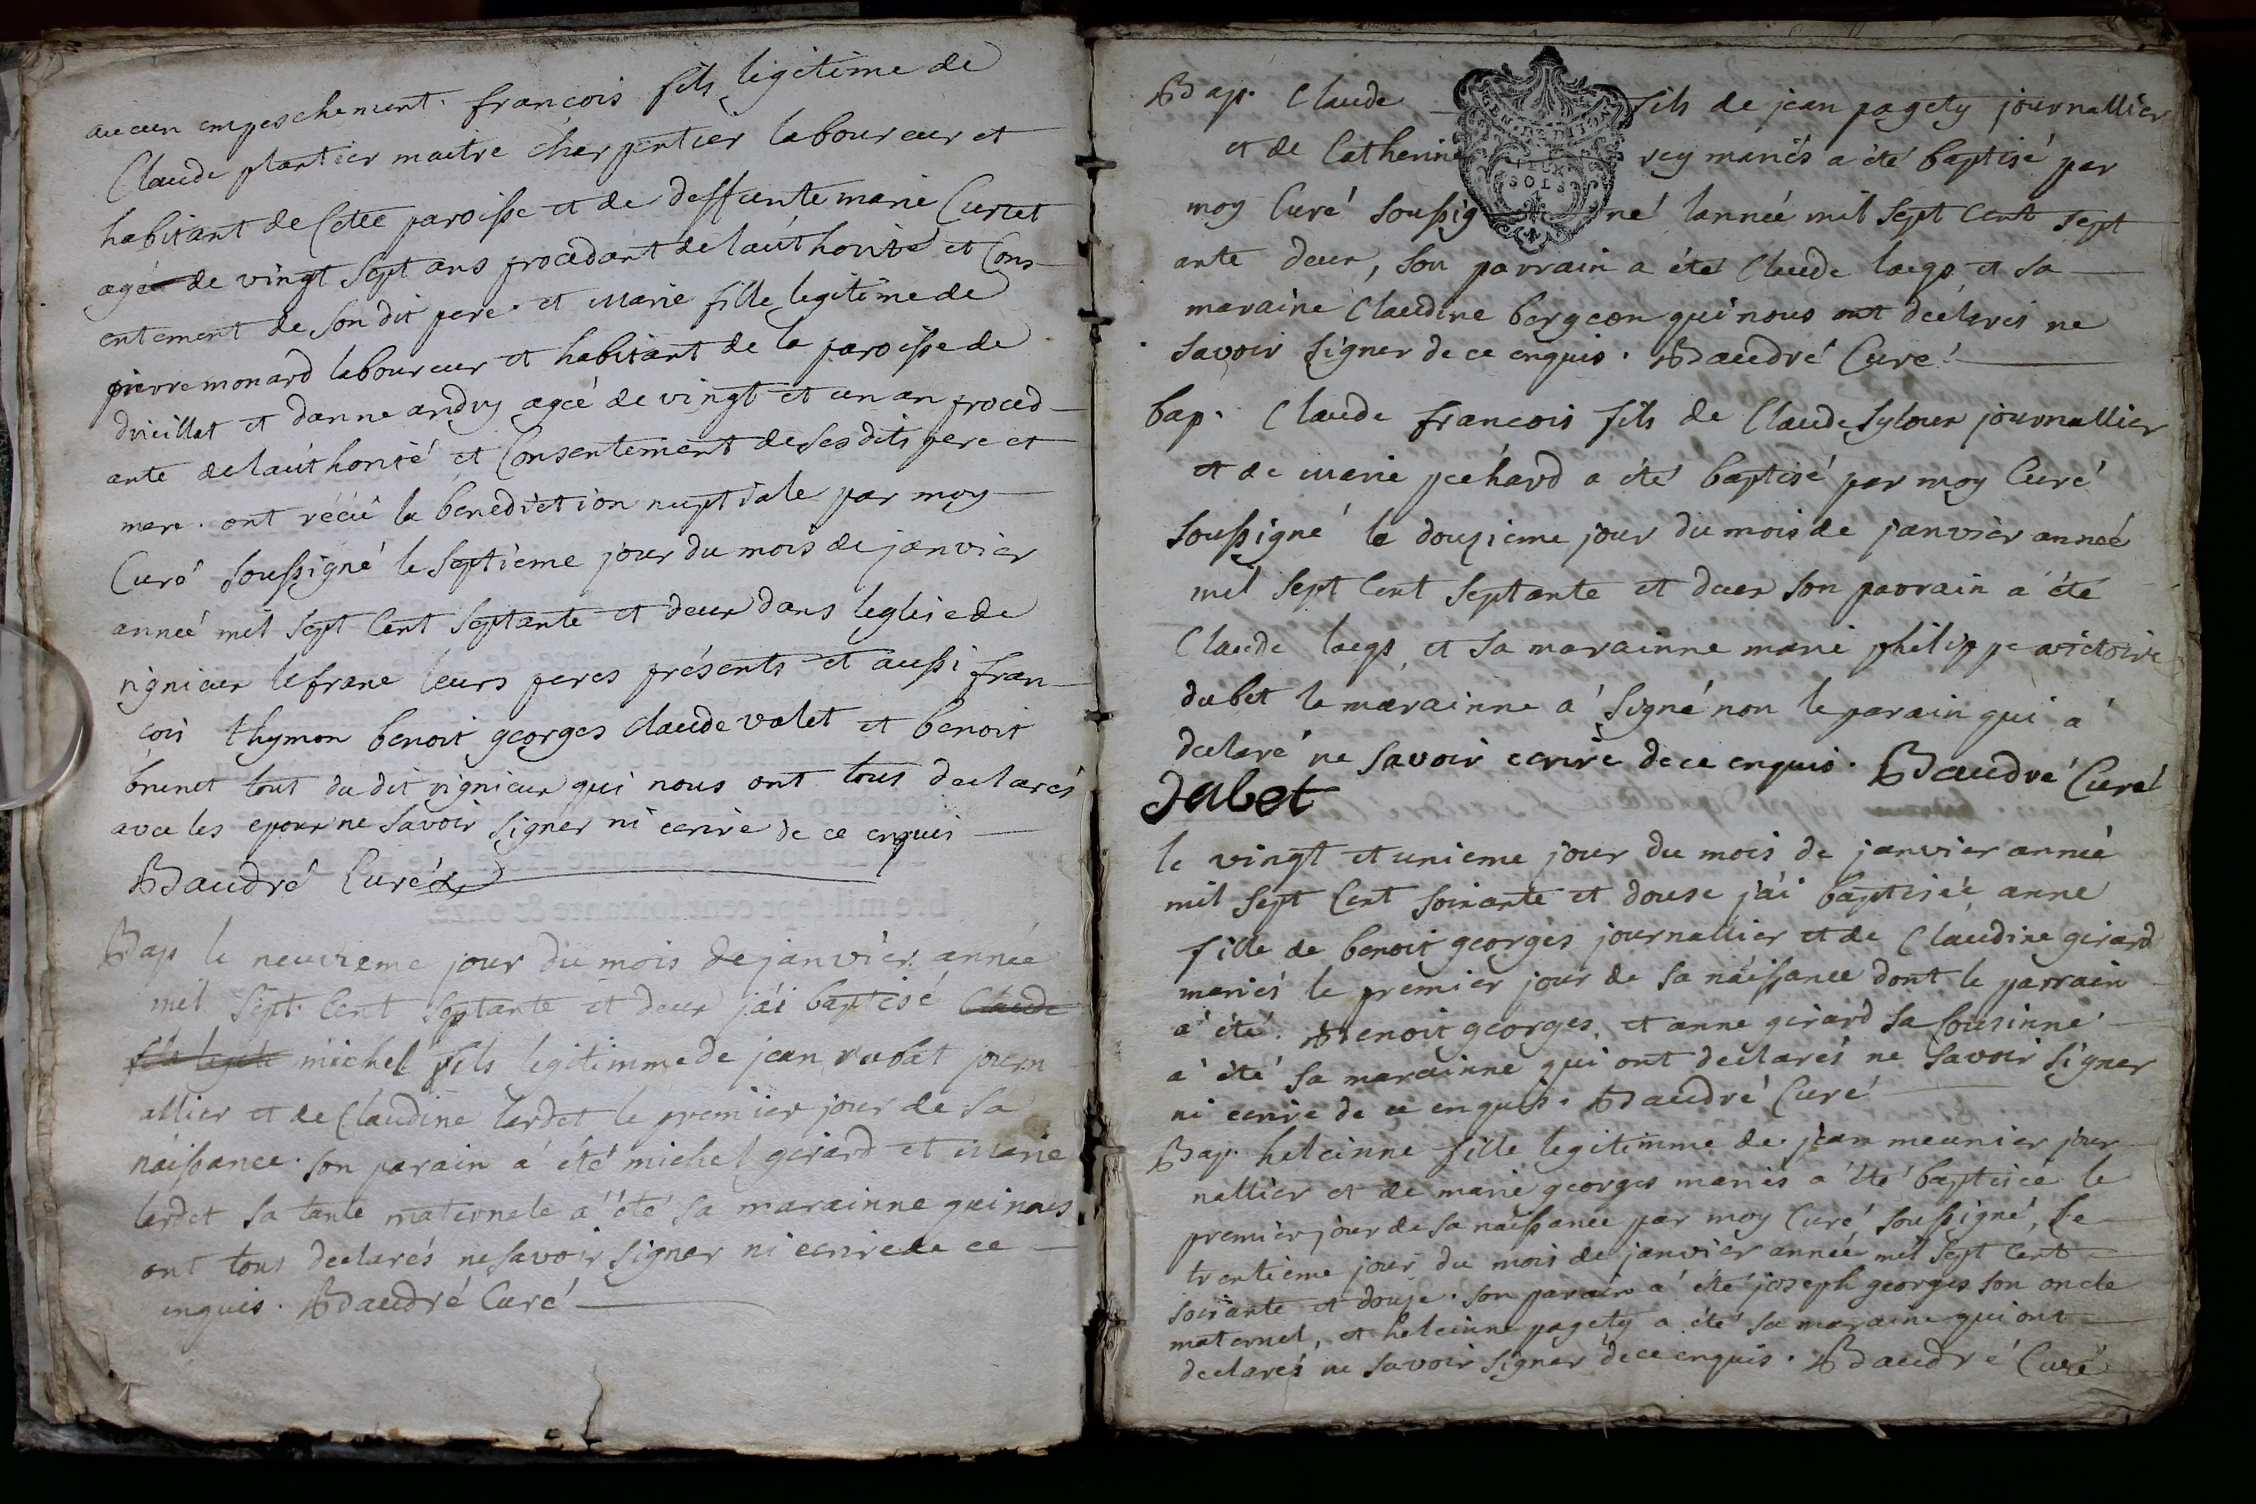 aucun empeschement. francois fils legitime de
Claude plantier maitre charpentier laboureur et
habitant de Cette paroisse et de deffunte marie Curtet
agé de vingt sept ans procedant de lauthorité et Cons-
entement de son dit pere. et Marie fille legitime de
pierre monard laboureur et habitant de la paroisse de
druillat et danne andry agée de vingt et un an proced-
ante de lauthorité et Consentement de ses dits pere et
mere. ont récüe la bénédiction nuptiale par moy
Curé soussigné le septieme jour du mois de janvier
anneé mil sept Cent septante et deux dans leglise de
rignieux lefranc leurs peres présents et aussi fran-
cois thymon benoit georges claude valet et benoit
brunet tout du dit rignieux qui nous ont tous declarés
avec les epoux ne savoir signer ni ecrire de ce enquis
Baudré Curé
Bap le neuvieme jour du mois de janvier année
mil sept. Cent septante et deux jái baptisé Claude
fils legiti michel fils legitimme de jean rubat journ
allier et de Claudine lardet le premier jour de sa
náissance. son parain a été michel girard et Marie
lardet sa tante maternele a été sa marainne qui nous
ont tous declarés ne savoir signer ni ecrire de ce
enquis. Baudré Curé
Bap. Claude fils de jean pagety journallier
GEN. DEUX SOLS
et de Catherine rey mariés a été baptisé par
moy Curé soussig né lannée mil sept Cent sept
ante deux, son parrain a été Claude et sa
maraine Claudine bergeon qui nous ont déclarés ne
savoir signer de ce enquis. Baudré Curé
bap. Claude francois fils de Claude journallier
et de Marie pechard a été baptisé par moy Curé
soussigné le douzieme jour du mois de janvier anneé
mil sept Cent septante et deux son parrain a été
Claude et sa marainne marie philippe victoire
dubet la marainne a signé non le parain qui a
declaré ne savoir ecrire de ce enquis. Baudré Curé
Dubet
le vingt et unieme jour du mois de janvier année
mil sept Cent soixante et douse jái baptisée anne
fille de benoit georges journallier et de Claudine girard
mariés le premier jour de sa náissance dont le parrain
a été. Benoit georges, et anne girard sa Cousinne
a été sa marainne qui ont declarés ne savoir signer
ni ecrire de ce enquis. Baudré Curé
Bap. heleinne fille legitimme de jean meunier jour
nallier et de marie georges mariés a été baptisée le
premier jour de sa naissance par moy Curé soussigné, le
trentieme jour du mois de janvier année mil sept Cent
soixante et douze. son parain a été joseph georges son oncle
maternel, et heleinne pagety a été sa maraine qui ont
declarés ne savoir signer de ce enquis. Baudré Curé